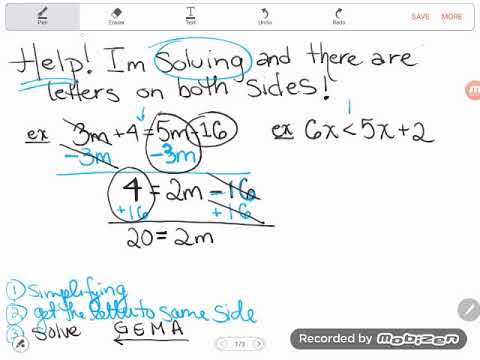 Pen Eraser Text Undo Redo SAVE MORE
Help! Im Solving and there are
letters on both sides!
ex 3m + 4 = 5m - 16 ex 6x < 5x + 2
-3m -3m
4 = 2m - 16
+16 +16
20 = 2m
① simplifying
② get the letter to same side
③ solve GEMA
1/3
Recorded by MOBIZEN